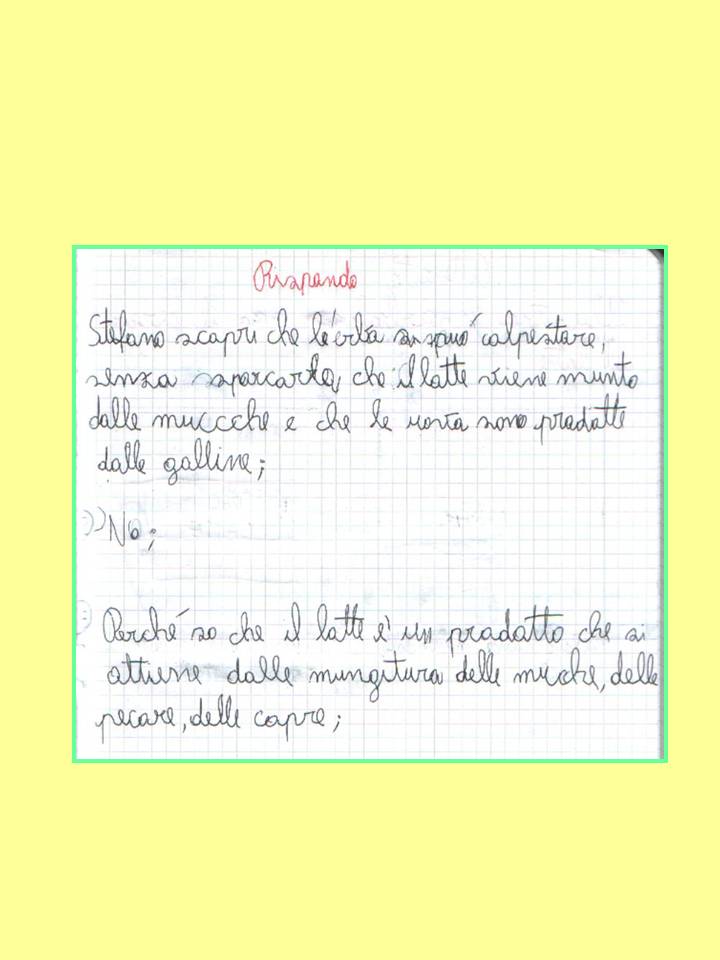 Rispondo
Stefano scoprì che l'erba si può calpestare,
senza sporcarla, che il latte viene munto
dalle muccche e che le uova sono prodotte
dalle galline;
)) No;
Perché so che il latte è un prodotto che si
ottiene dalle mungitura delle muche, delle
pecore, delle capre;